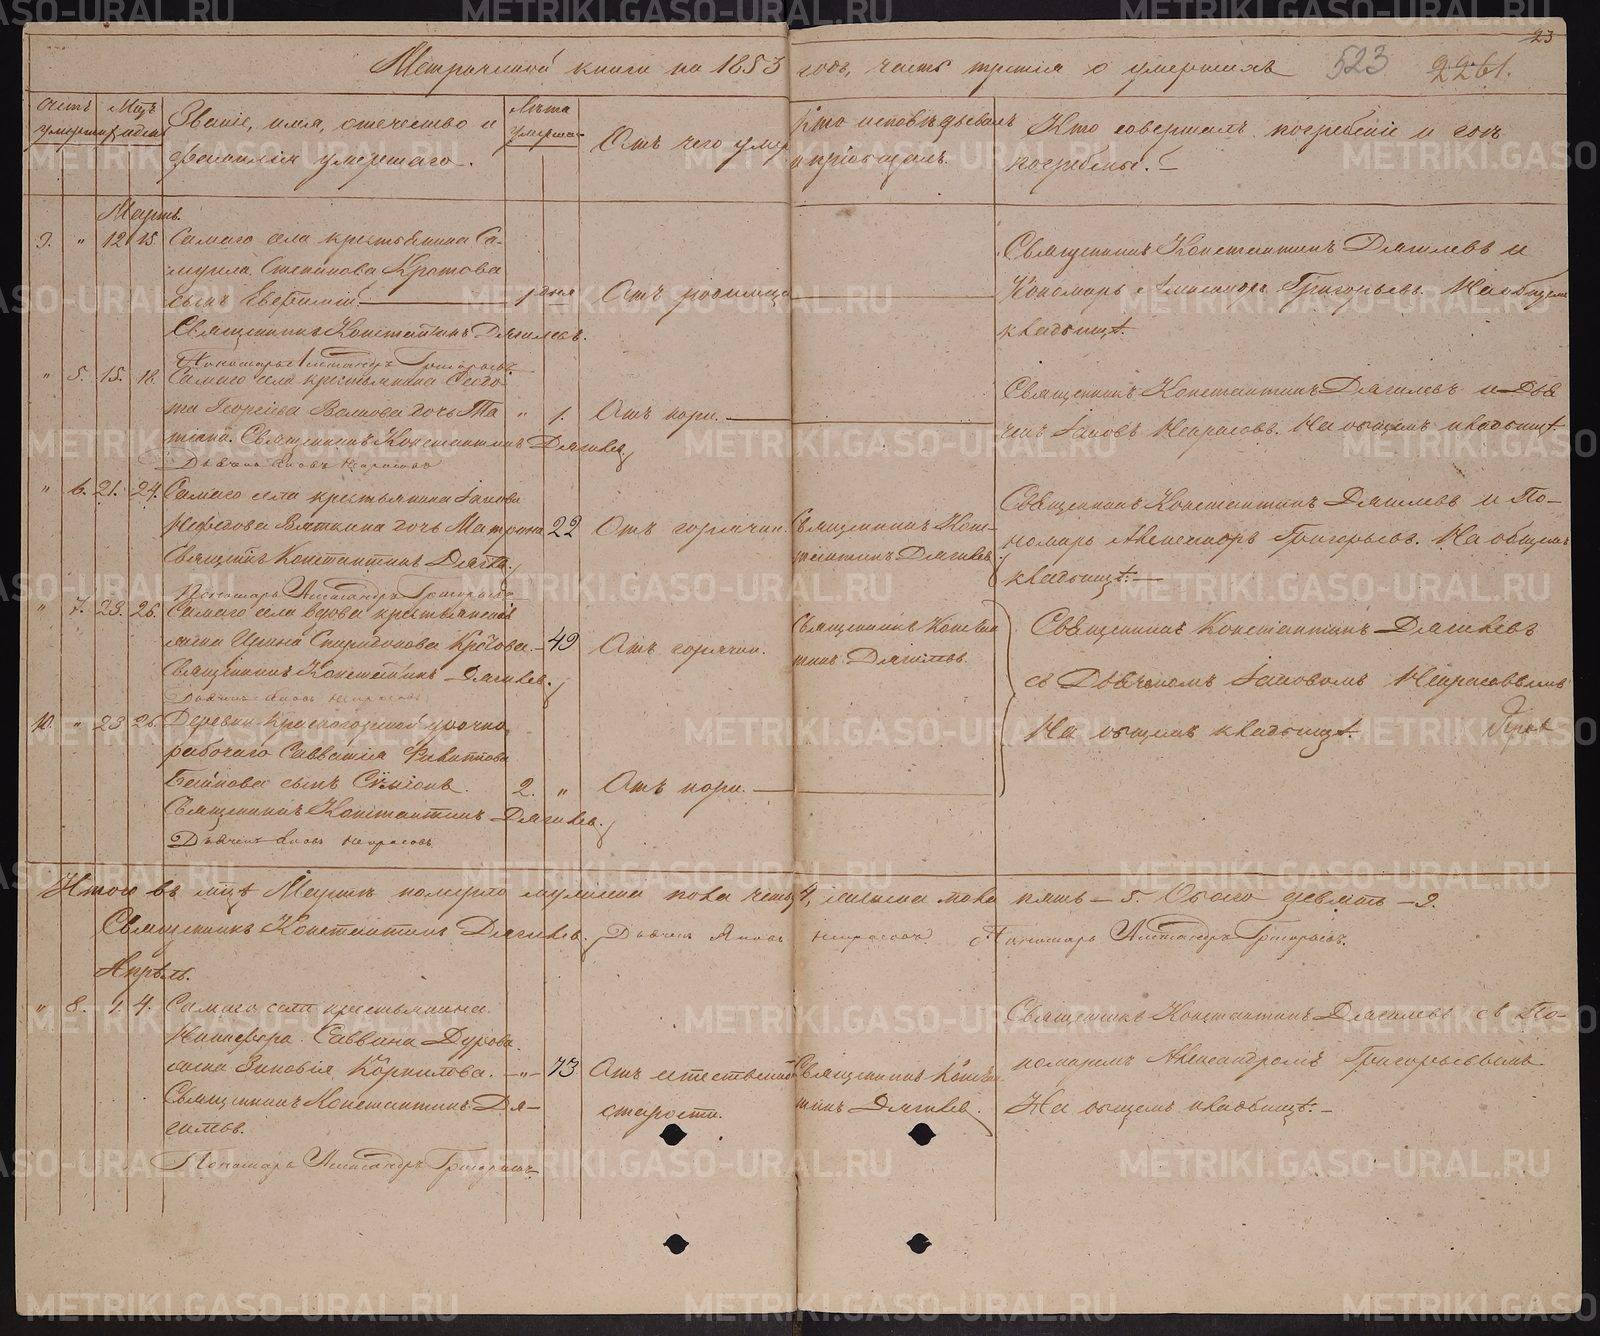 Метрической книги на 1853 годъ, часть третія о умершихъ 523 2261.
23
Счетъ умершихъ
Мцъ и день
Званіе, имя, отечество и
фамилія умершаго.
Лѣта умерша-
Отъ чего умер
Кто исповѣдывалъ
и пріобщалъ.
Кто совершалъ погребеніе и гдѣ
погребены.
Мартъ.
9. " 12 15 Самаго села крестьянина Са-
муила Степанова Кротова
сынъ Евѳимій 1 дня Отъ родимца
Священникъ Константинъ Дягилевъ.
Пономарь Александръ Григорьевъ.
Священникъ Константинъ Дягилевъ и
Пономарь Александръ Григорьевъ. На общемъ
кладбищѣ.
" 5. 15. 18. Самаго села крестьянина Ѳедо
та Георгіева Волкова дочь Та " 1. Отъ кори.
тіана. Священникъ Константинъ Дягилев
Дьячекъ Яковъ Некрасовъ
Священникъ Константинъ Дягилевъ и Дья
чекъ Іаковъ Некрасовъ. На общемъ кладбищѣ.
" 6. 21. 24. Самаго села крестьянина Іакова
Вяткина дочь Матрона 22 Отъ горячки.
Священникъ Константинъ Дягил.
Пономарь Александръ Григорьевъ
Священникъ Конс-
тантинъ Дягилев
Священникъ Константинъ Дягилевъ и По-
номарь Александръ Григорьевъ. На общемъ
кладбищѣ.
" 7. 23. 26. Самаго села вдова крестьянская
жена Ирина Спиридонова Кротова. 49 Отъ горячки.
Священникъ Константинъ Дягилев.
Дьячекъ Яковъ Некрасовъ
Священникъ Констан
тинъ Дягилевъ.
Священникъ Константинъ Дягилевъ
съ Дьячкомъ Іаковомъ Некрасовымъ
На общемъ кладбищѣ.
10. " 23 26. Деревни Красногорской урочно
рабочаго Савватія Филиппова
сынъ Сѵмеонъ. 2. " Отъ кори.
Священникъ Константинъ Дягилев.
Дьячекъ Яковъ Некрасовъ
Итого въ мцѣ Мартѣ померло мужеска пола четы 4, женска пола пять - 5. Обоего девять - 9.
Священникъ Константинъ Дягилев. Дьячекъ Яковъ Некрасовъ Пономарь Александръ Григорьевъ.
Апрѣль.
" 8. 1. 4. Самаго села крестьянина
Никифора Саввина Дурова
жена Зиновія Корнилова. " 73 Отъ естественной
старости.
Священникъ Константинъ Дя-
гилевъ.
Пономарь Александръ Григорьевъ
Священникъ Констан
тинъ Дягилев.
Священникъ Константинъ Дягилевъ съ По-
номаремъ Александромъ Григорьевымъ
На общемъ кладбищѣ.